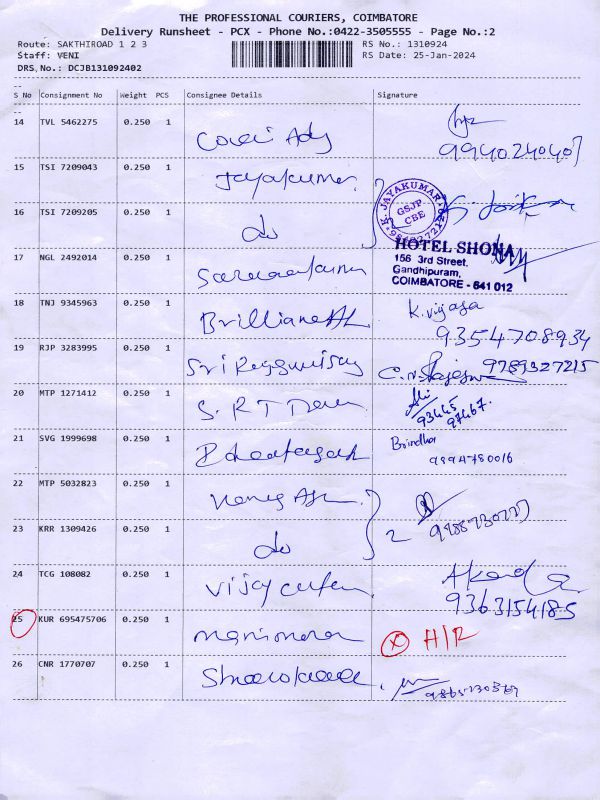 THE PROFESSIONAL COURIERS, COIMBATORE
Delivery Runsheet - PCX - Phone No.:0422-3505555 - Page No.:2
Route: SAKTHIROAD 1 2 3
RS No.: 1310924
Staff: VENI
RS Date: 25-Jan-2024
DRS, No.: DCJB131092402
--
S No Consignment No Weight PCS Consignee Details Signature
--
14 TVL 5462275 0.250 1
9940240407
15 TSI 7209043 0.250 1 Jayakumar
K. JAYAKUMAR
GSJP
CBE
16 TSI 7209205 0.250 1 do
HOTEL SHONA
17 NGL 2492014 0.250 1
156 3rd Street,
Gandhipuram,
COIMBATORE - 641 012
18 TNJ 9345963 0.250 1 K. vijaya
9354708934
19 RJP 3283995 0.250 1 9789327215
20 MTP 1271412 0.250 1 S. R T
93445
97467.
21 SVG 1999698 0.250 1 Brindha
9894780016
22 MTP 5032823 0.250 1
2
23 KRR 1309426 0.250 1 do
24 TCG 108082 0.250 1
9363154185
25 KUR 695475706 0.250 1 H/R
26 CNR 1770707 0.250 1